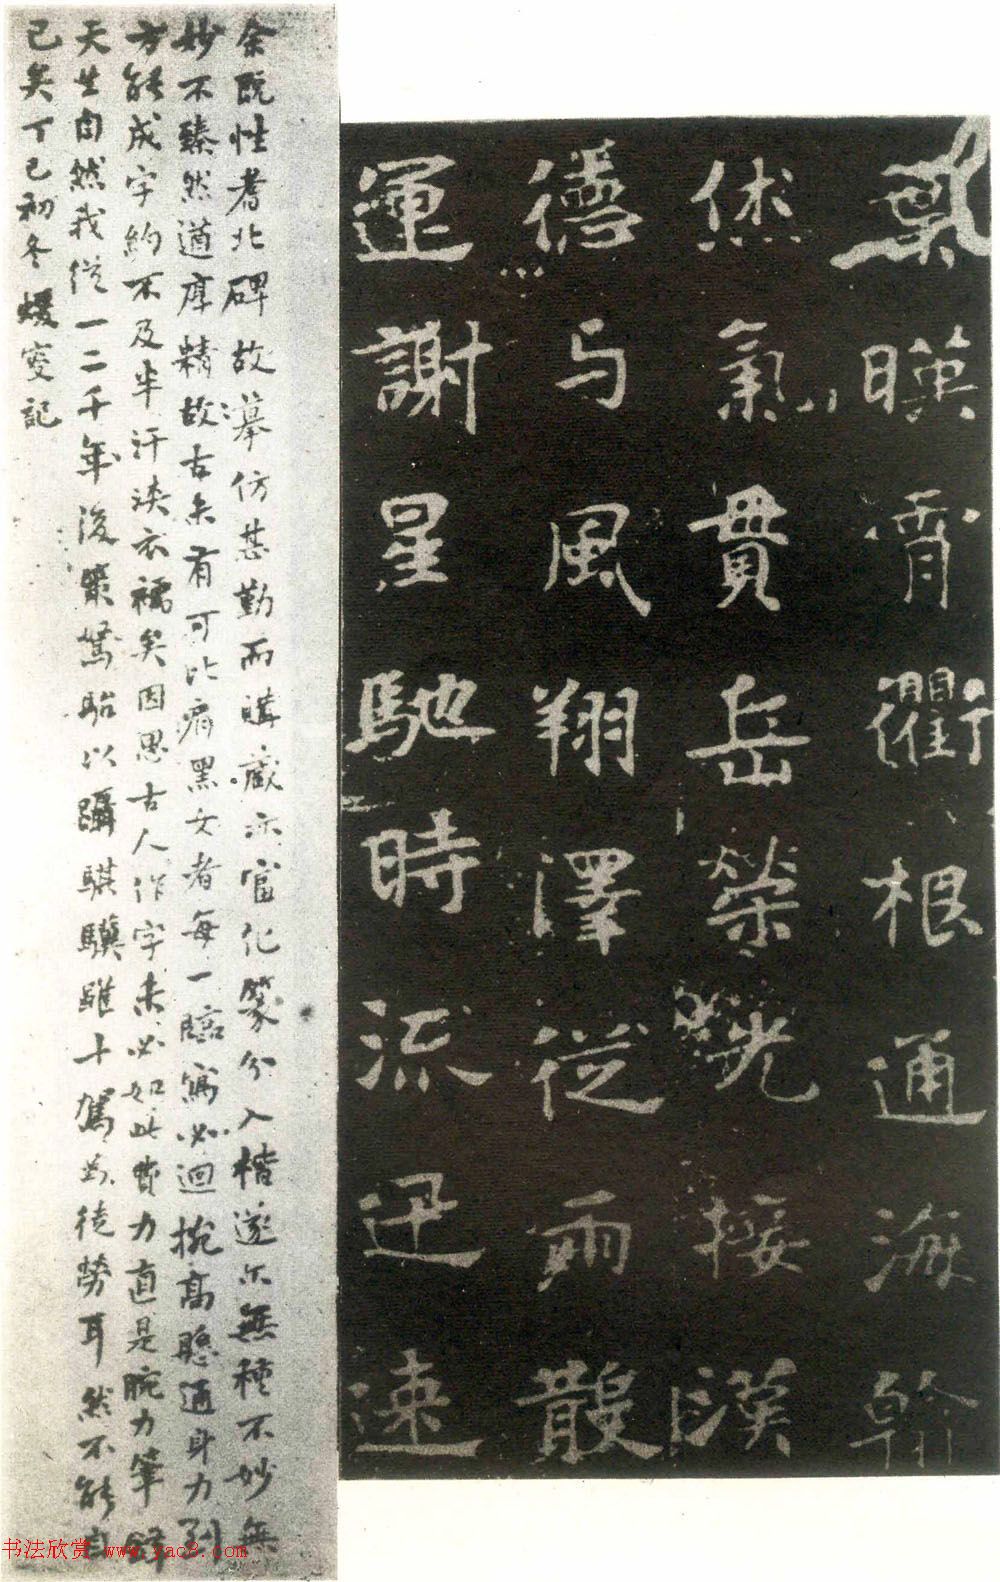 葉暎霄衢根通海翰
休氣貫岳榮光接漢
德与風翔澤從雨散
運謝星馳時流迅速
余既性耆北碑故摹仿甚勤而購藏亦富化篆分入楷遂尒無種不妙無
妙不臻然遒厚精故古未有可比肩黑女者每一臨寫必迴捥高懸通身力到
方能成字約不及半汗浹衣襦矣因思古人作字未必如此費力直是腕力筆鋒
天生自然我從一二千年後策駑駘以躡騏驥雖十駕爲徒勞耳然不能自
已矣丁巳初冬蝯叟記
书法欣赏 www.yac8.com